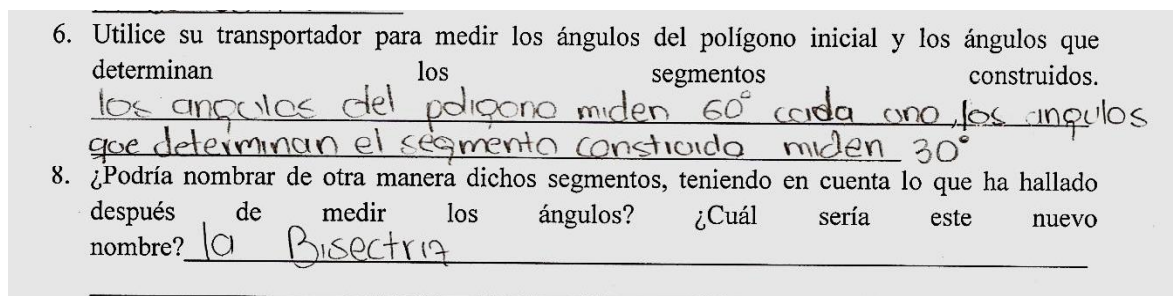 6. Utilice su transportador para medir los ángulos del polígono inicial y los ángulos que
determinan los segmentos construidos.
los angulos del poligono miden 60° cada uno, los angulos
que determinan el segmento construido miden 30°
8. ¿Podría nombrar de otra manera dichos segmentos, teniendo en cuenta lo que ha hallado
después de medir los ángulos? ¿Cuál sería este nuevo
nombre? la Bisectriz